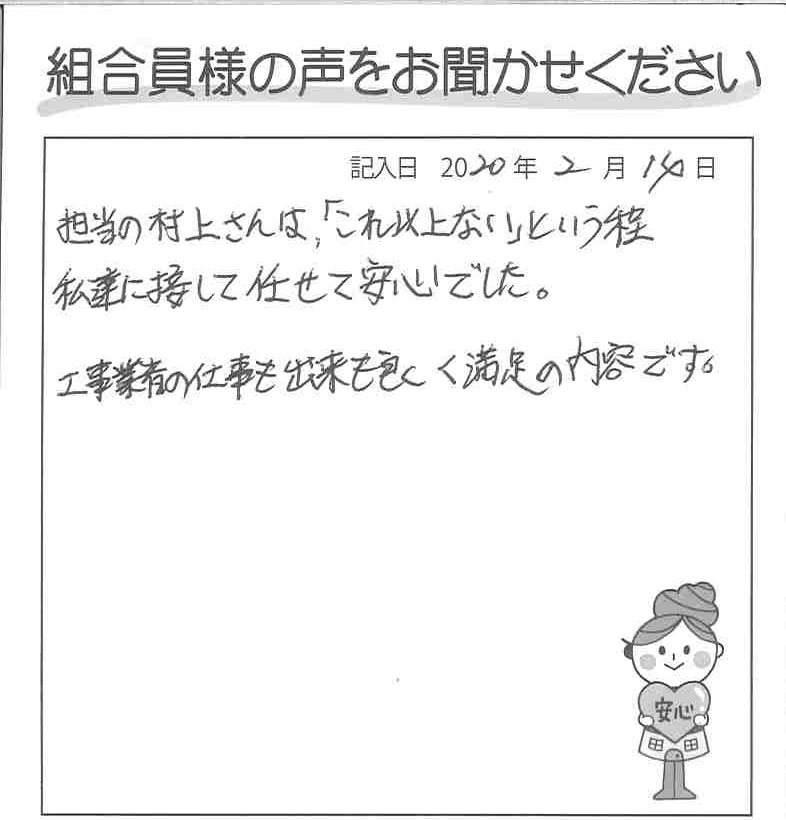 組合員様の声をお聞かせください
記入日 2020年 2月 14日
担当の村上さんは、「これ以上ない」という程
私達に接して任せて安心でした。
工事業者の仕事も出来も良く満足の内容です。
安心